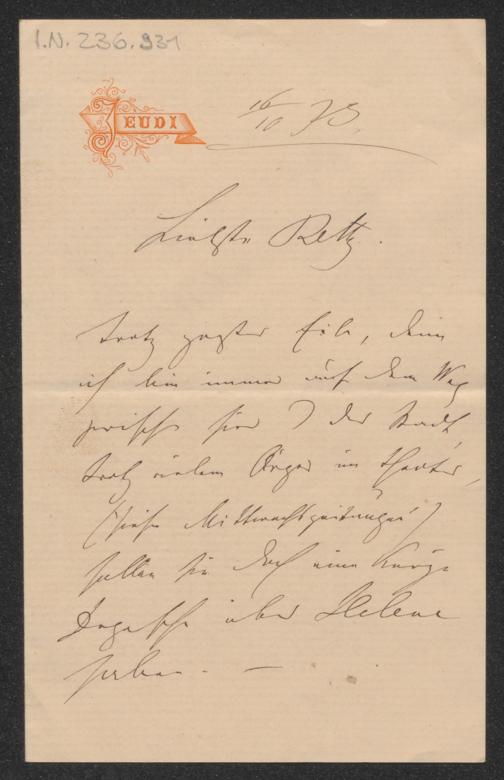 I.N. 236.931
JEUDI
16/10 73.
Liebste Betty.
trotz größter Eile, denn
ich bin immer auf dem Weg
zwischen hier & der Stadt,
trotz vielem Ärger im Theater,
(siehe Mittwochzeitungen)
sollen Sie doch eine kurze
Depesche über Helene
haben. —